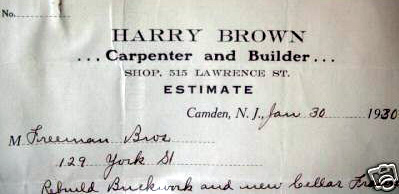 No.
HARRY BROWN
... Carpenter and Builder ...
SHOP, 515 LAWRENCE ST.
ESTIMATE
Camden, N. J., Jan 30 1930
M Freeman Bros
129 York St
Rebuild Brickwork and new Cellar